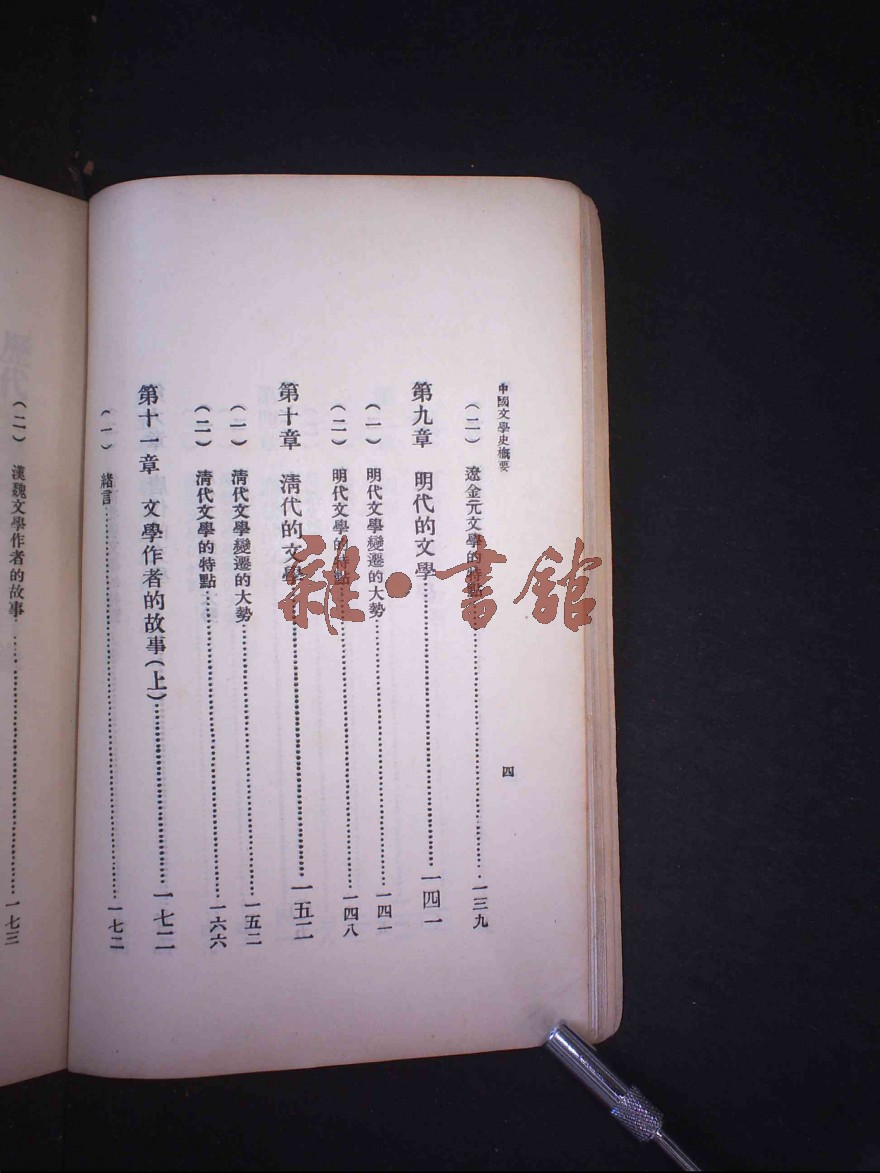 中國文學史概要
四
(二) 遼金元文學的特點……一三九
第九章 明代的文學……一四一
(一) 明代文學變遷的大勢……一四一
(二) 明代文學的特點……一四八
第十章 清代的文學……一五二
(一) 清代文學變遷的大勢……一五二
(二) 清代文學的特點……一六六
第十一章 文學作者的故事(上)……一七二
(一) 緒言……一七二
(二) 漢魏文學作者的故事……一七三
雜·書館